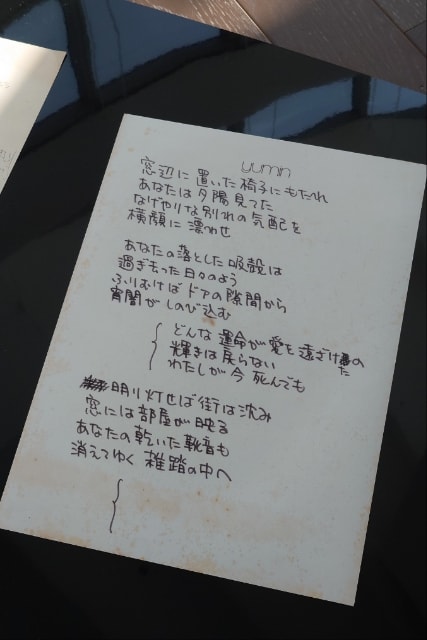 yumin
窓辺に置いた椅子にもたれ
あなたは夕陽見てた
なげやりな別れの気配を
横顔に漂わせ
あなたの落とした吸殻は
過ぎ去った日々のよう
ふりむけばドアの隙間から
宵闇がしのび込む
どんな運命が愛を遠ざけたの
輝きは戻らない
わたしが今死んでも
明り灯せば街は沈み
窓には部屋が映る
あなたの乾いた靴音も
消えてゆく雑踏の中へ